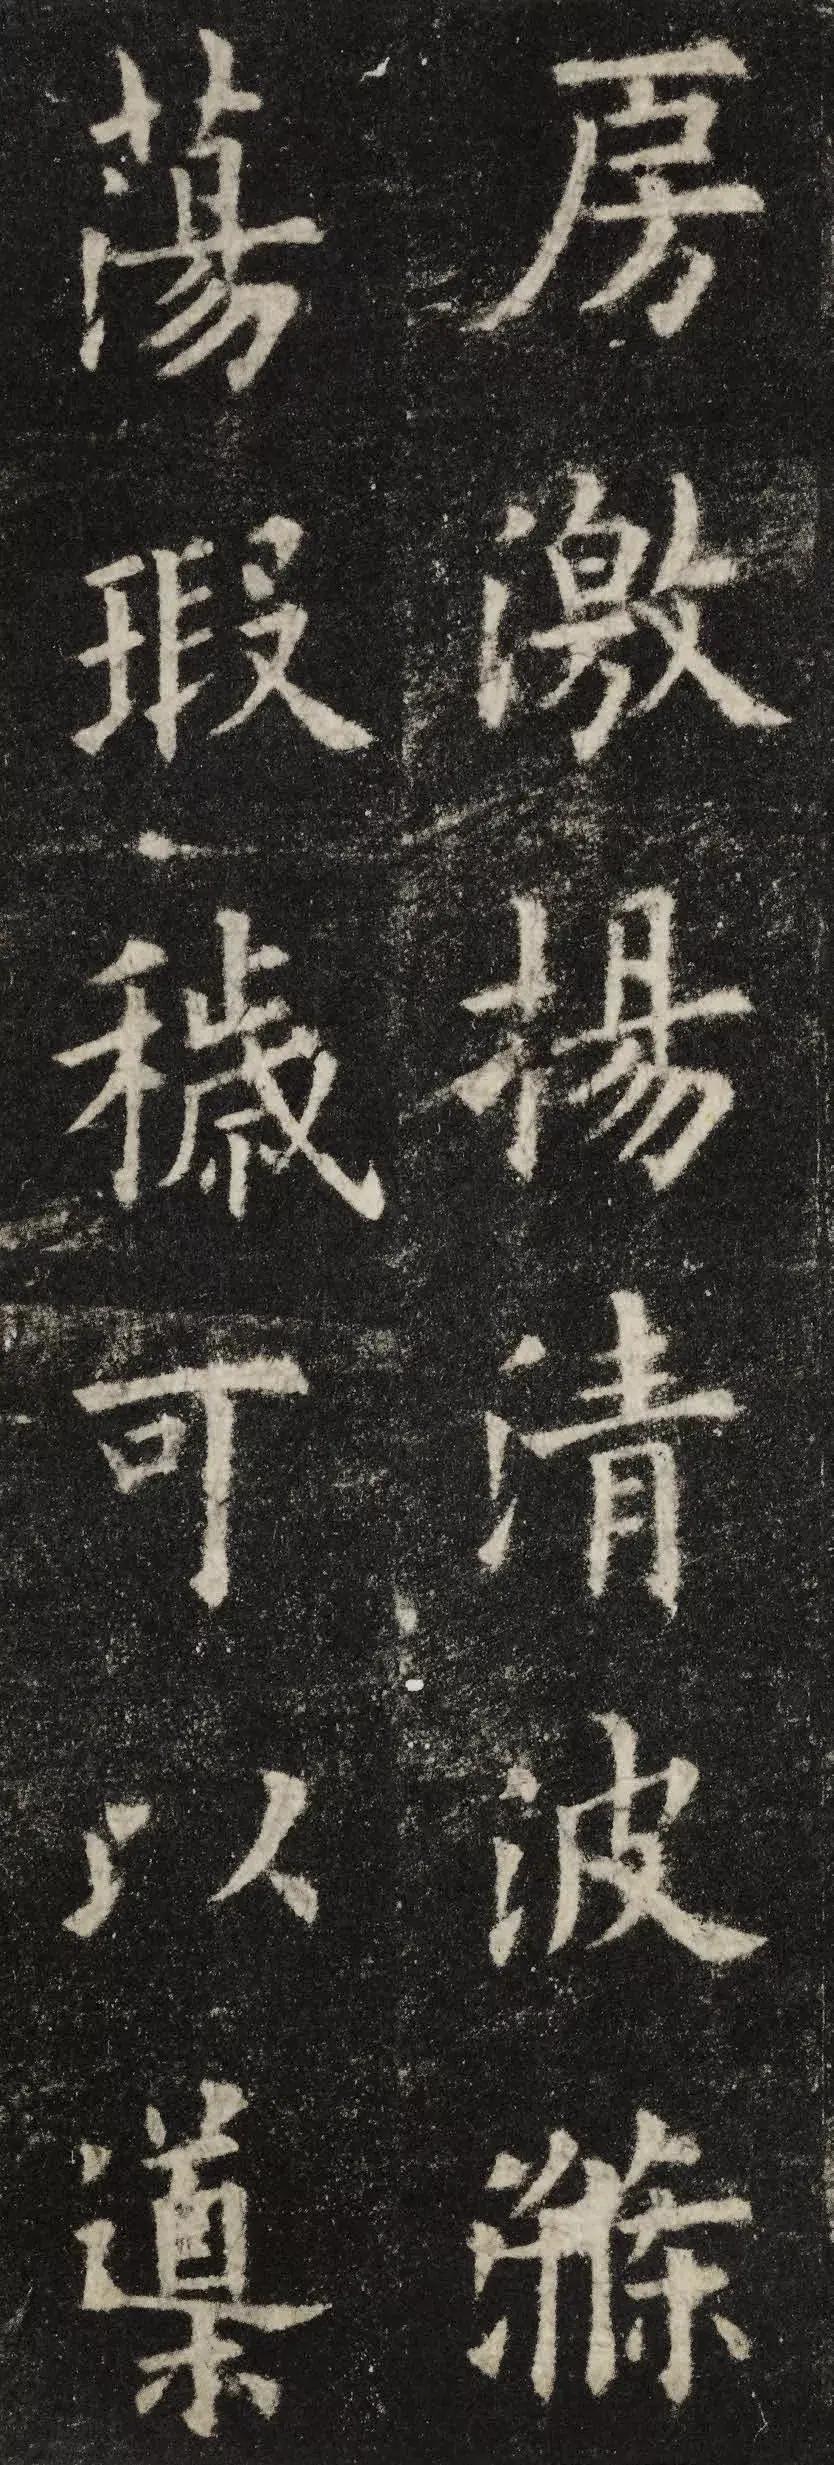 房激揚清波滌
蕩瑕穢可以導